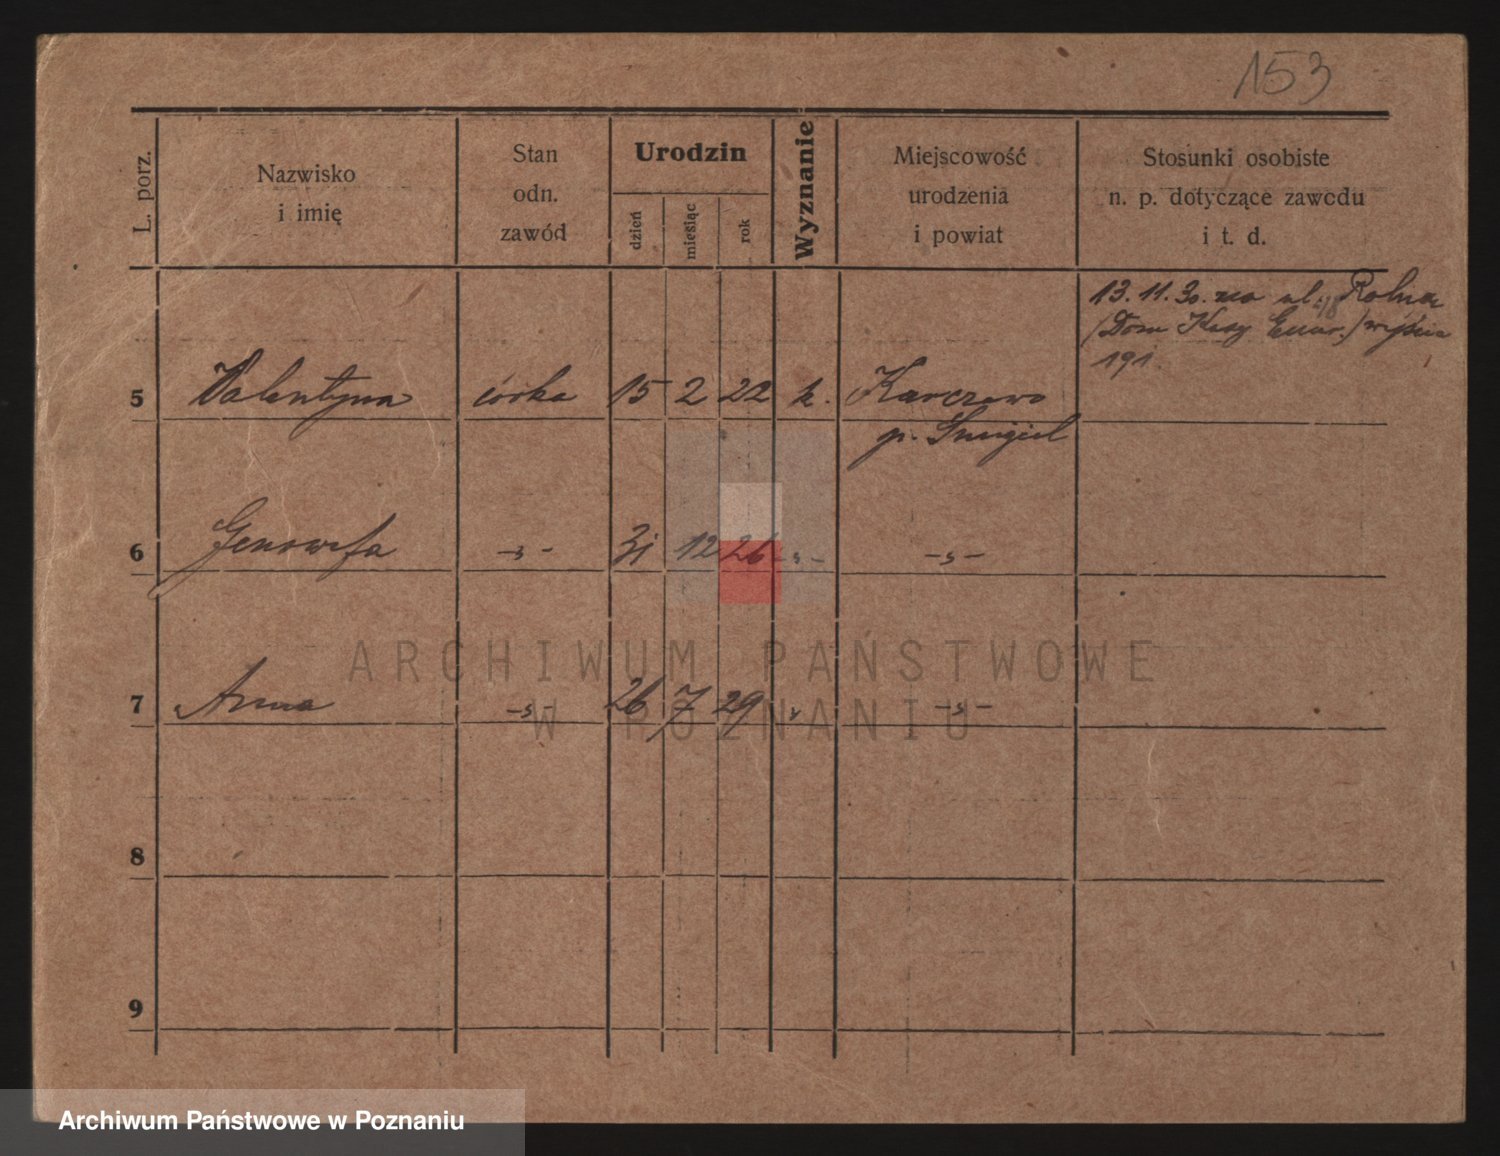 153
L. porz.
Nazwisko
i imię
Stan
odn.
zawód
Urodzin
dzień
miesiąc
rok
Wyznanie
Miejscowość
urodzenia
i powiat
Stosunki osobiste
n. p. dotyczące zawodu
i t. d.
13.11.30. na ul. Rolna
/Dom
191.
5 Valentyna córka 15 2 22 k. Karczewo
p. Śmigiel
6 Genowefa -„- 31 12 26 -„- -„-
7 Anna -„- 26 7 29 „ -„-
8
9
ARCHIWUM PAŃSTWOWE
W POZNANIU
Archiwum Państwowe w Poznaniu